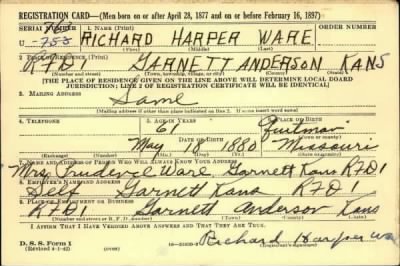 REGISTRATION CARD—(Men born on or after April 28, 1877 and on or before February 16, 1897)
SERIAL NUMBER 1. NAME (Print) ORDER NUMBER
U-753 RICHARD HARPER WARE
(First) (Middle) (Last)
2. PLACE OF RESIDENCE (Print)
RFD1 GARNETT ANDERSON KANS
(Number and street) (Town, township, village, or city) (County) (State)
[THE PLACE OF RESIDENCE GIVEN ON THE LINE ABOVE WILL DETERMINE LOCAL BOARD
JURISDICTION; LINE 2 OF REGISTRATION CERTIFICATE WILL BE IDENTICAL]
3. MAILING ADDRESS
Same
(Mailing address if other than place indicated on line 2. If same insert word same)
4. TELEPHONE 5. AGE IN YEARS 6. PLACE OF BIRTH
61 Quitman
DATE OF BIRTH (Town or county)
May 18 1880 Missouri
(Exchange) (Number) (Mo.) (Day) (Yr.) (State or country)
7. NAME AND ADDRESS OF PERSON WHO WILL ALWAYS KNOW YOUR ADDRESS
Mrs Ware Garnett Kans RFD1
8. EMPLOYER'S NAME AND ADDRESS
Self Garnett Kans RFD1
9. PLACE OF EMPLOYMENT OR BUSINESS
RFD1 Garnett Anderson Kans
(Number and street or R. F. D. number) (Town) (County) (State)
I AFFIRM THAT I HAVE VERIFIED ABOVE ANSWERS AND THAT THEY ARE TRUE.
D. S. S. Form 1
(Revised 4-1-42) (Registrant's signature)
Richard Harper